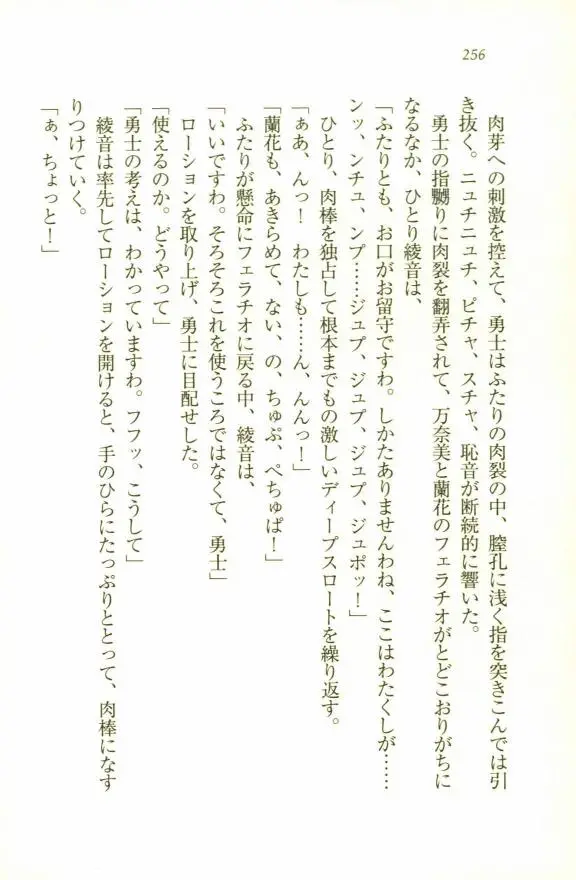 256
肉芽への刺激を控えて、勇士はふたりの肉裂の中、膣孔に浅く指を突きこんでは引
き抜く。ニュチニュチ、ピチャ、スチャ、恥音が断続的に響いた。
勇士の指嬲りに肉裂を翻弄されて、万奈美と蘭花のフェラチオがとどこおりがちに
なるなか、ひとり綾音は、
「ふたりとも、お口がお留守ですわ。しかたありませんわね、ここはわたくしが……
ンッ、ンチュ、ンプ……ジュプ、ジュプ、ジュプ、ジュポッ！」
ひとり、肉棒を独占して根本までもの激しいディープスロートを繰り返す。
「ぁあ、んっ！　わたしも……ん、んんっ！」
「蘭花も、あきらめて、ない、の、ちゅぷ、ぺちゅぱ！」
ふたりが懸命にフェラチオに戻る中、綾音は、
「いいですわ。そろそろこれを使うころではなくて、勇士」
ローションを取り上げ、勇士に目配せした。
「使えるのか。どうやって」
「勇士の考えは、わかっていますわ。フフッ、こうして」
綾音は率先してローションを開けると、手のひらにたっぷりととって、肉棒になす
りつけていく。
「ぁ、ちょっと！」